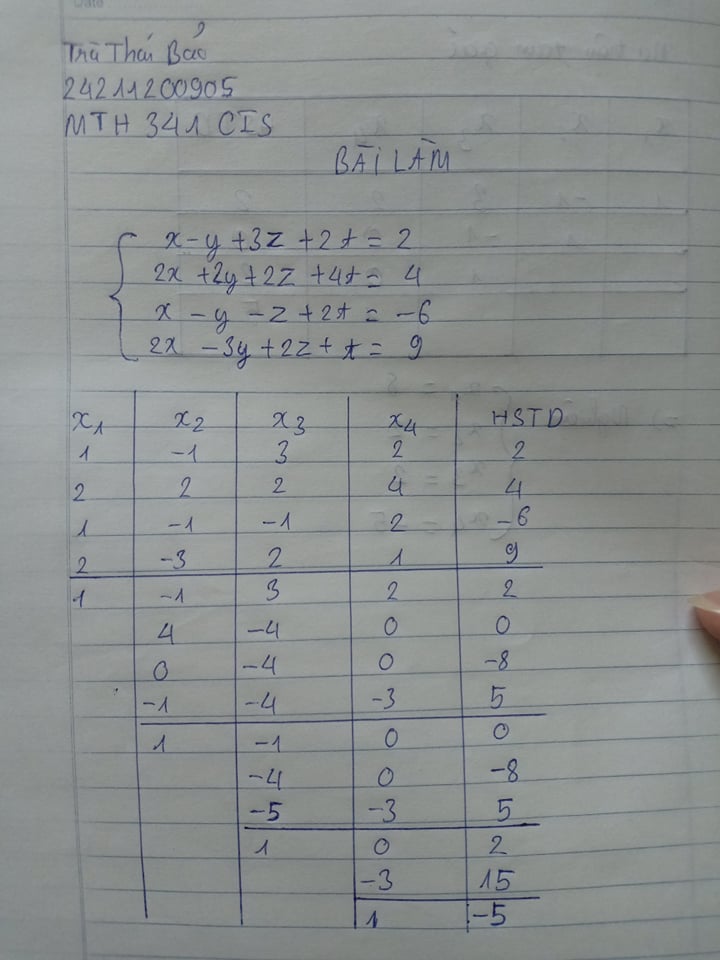 Trà Thái Bảo
24211200905
MTH 341 CIS
BÀI LÀM
x - y + 3z + 2t = 2
2x + 2y + 2z + 4t = 4
x - y - z + 2t = -6
2x - 3y + 2z + t = 9
x₁ x₂ x₃ x₄ HSTD
1 -1 3 2 2
2 2 2 4 4
1 -1 -1 2 -6
2 -3 2 1 9
1 -1 3 2 2
4 -4 0 0
0 -4 0 -8
-1 -4 -3 5
1 -1 0 0
-4 0 -8
-5 -3 5
1 0 2
-3 15
1 -5